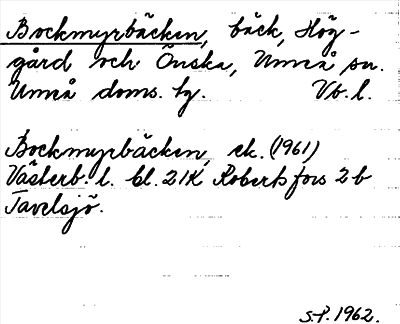 Bockmyrbäcken, bäck, Hög-
gård och Önska, Umeå sn.
Umeå doms. tg. Vb. l.
Bockmyrbäcken, ek. (1961)
Västerb. l. bl. 21K Robertsfors 2b
Tavelsjö.
S.P. 1962.